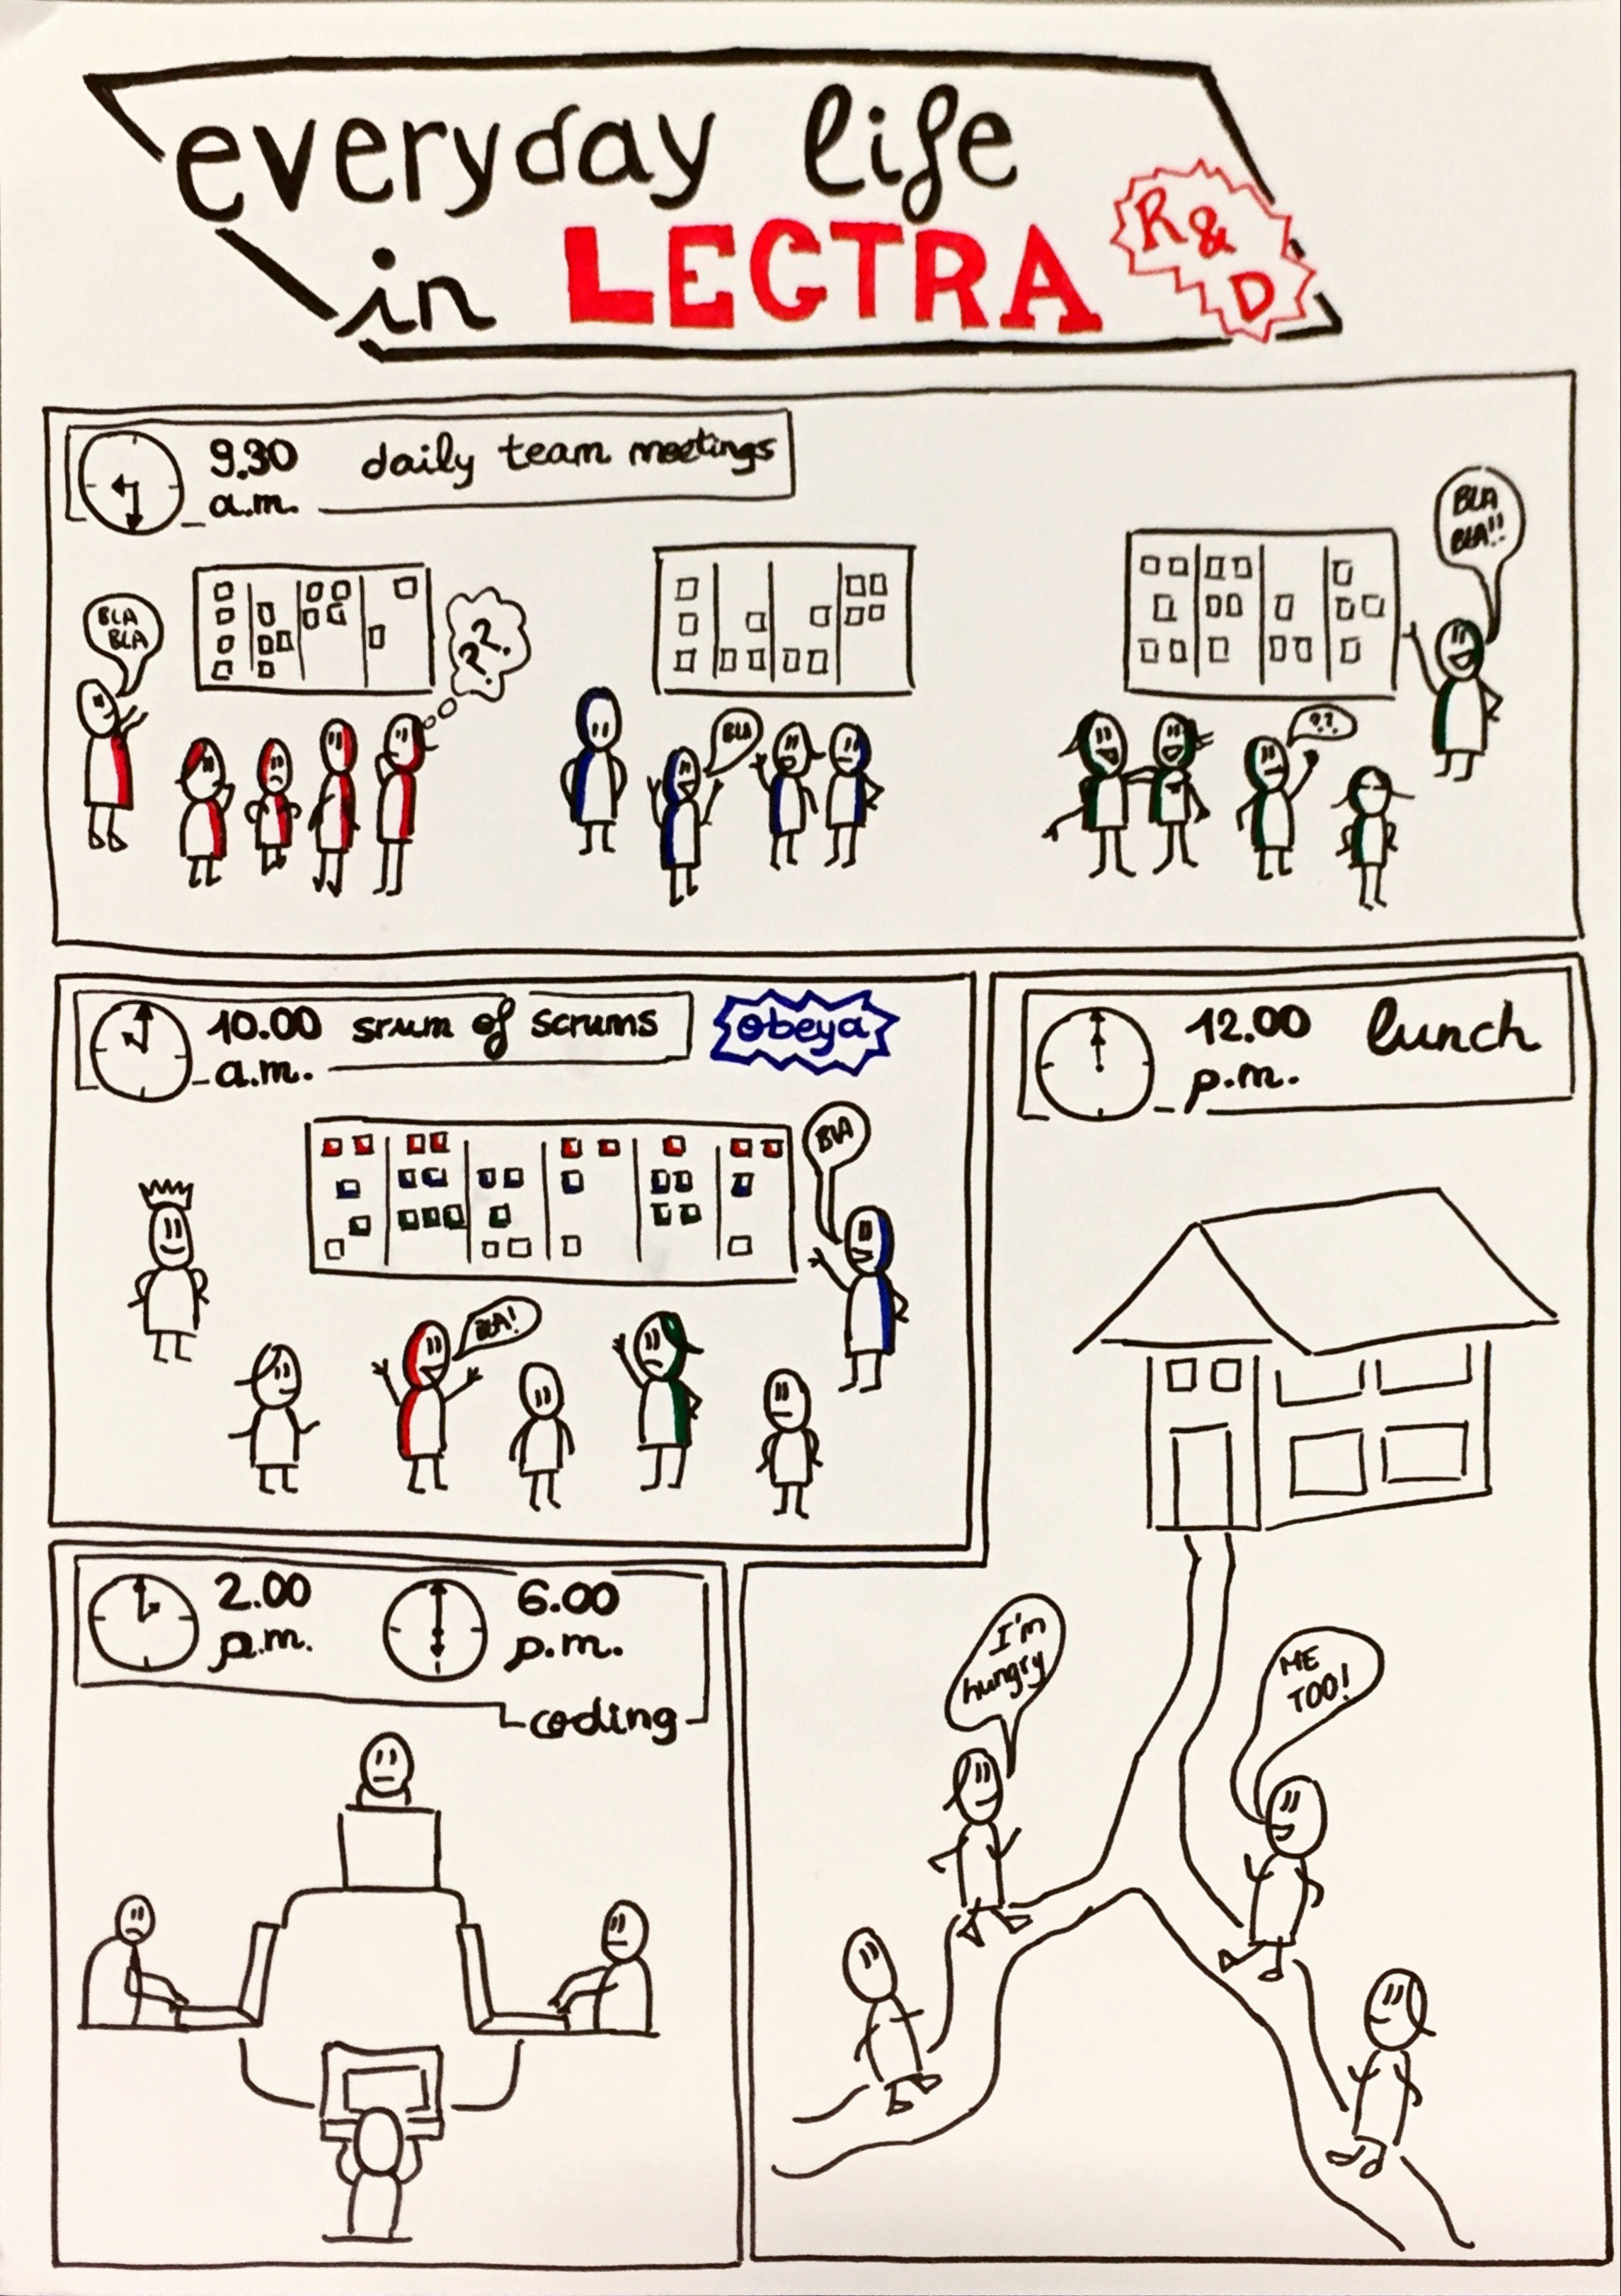 everyday life
in LECTRA
R&
D
9.30 daily team meetings
a.m.
BLA
BLA
??
BLA
?.?
BLA
BLA!!
10.00 srum of scrums
a.m.
obeya
BLA
BLA!
12.00 lunch
p.m.
I'm
hungry
ME
TOO!
2.00
p.m.
6.00
p.m.
coding